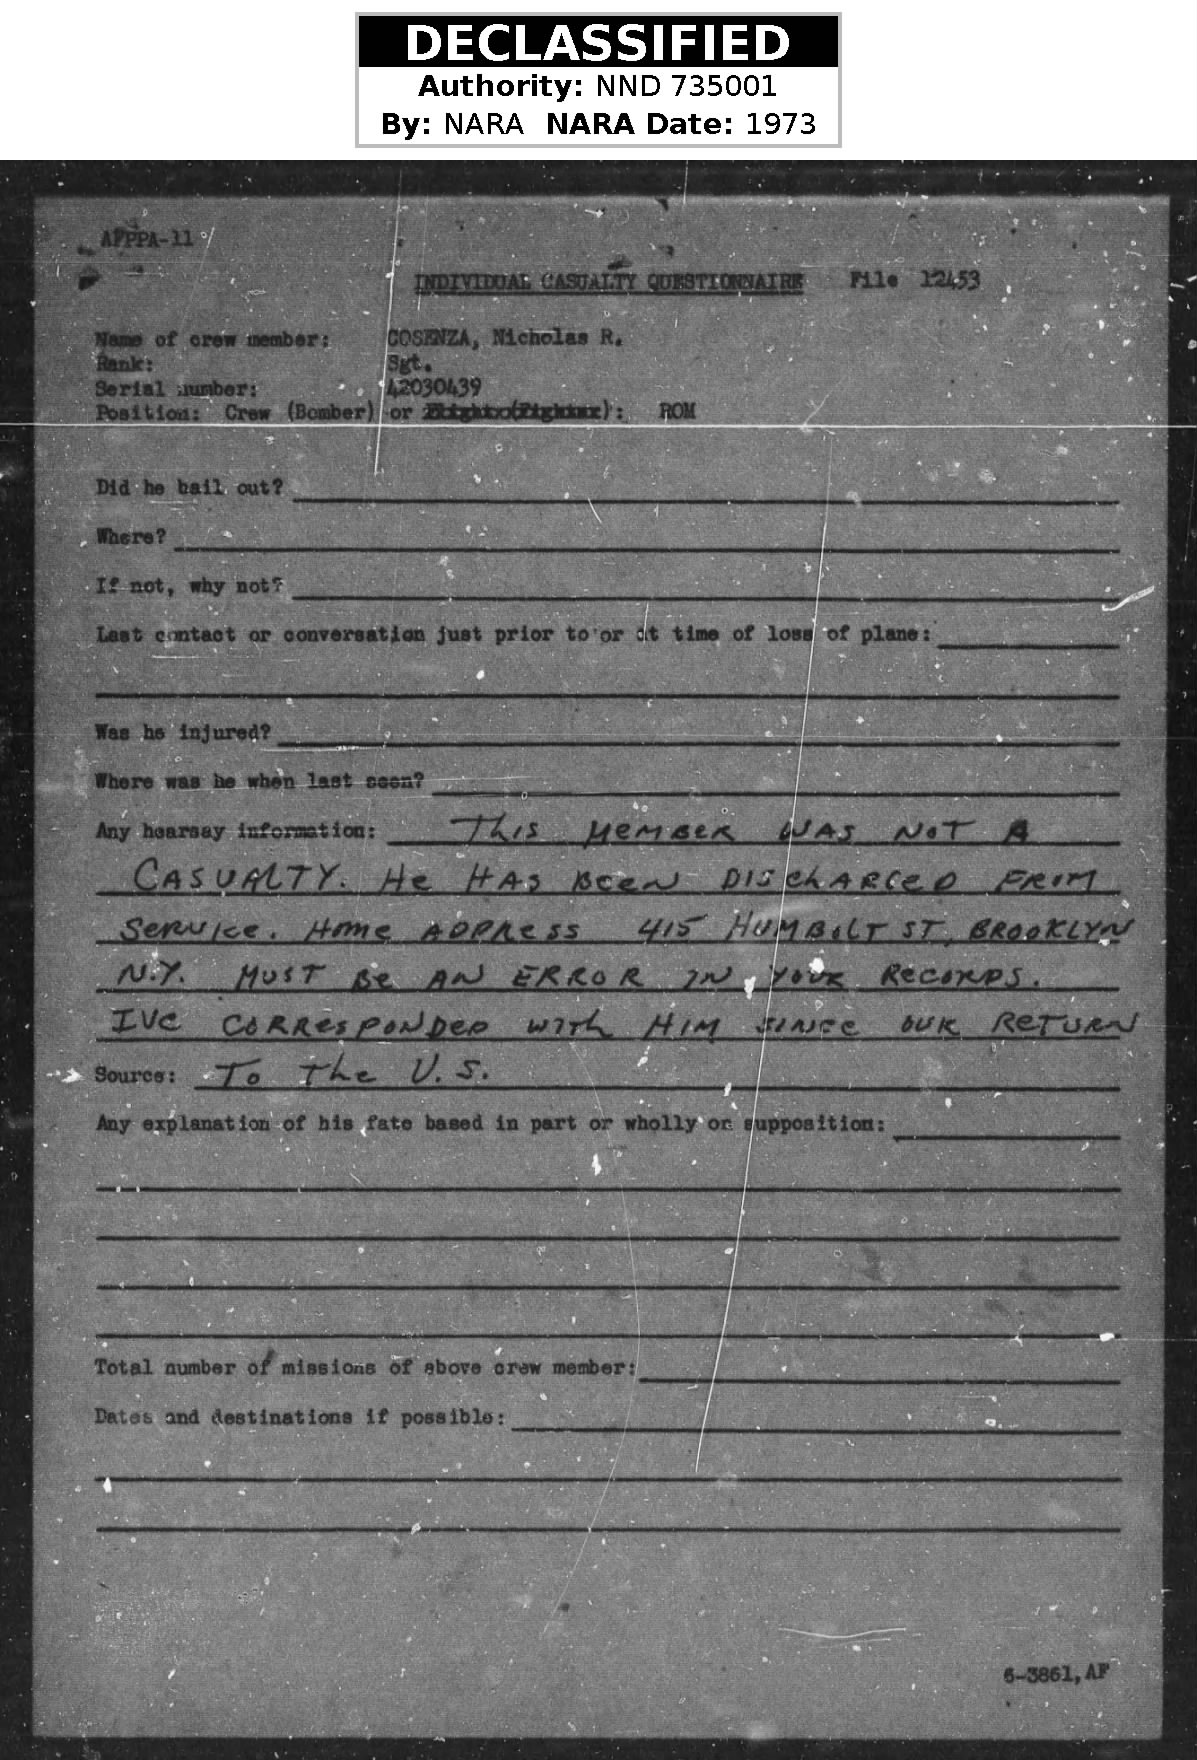 DECLASSIFIED
Authority: NND 735001
By: NARA NARA Date: 1973
AFPPA-11
INDIVIDUAL CASUALTY QUESTIONNAIRE File 12453
Name of crew member: COSENZA, Nicholas R.
Rank: Sgt.
Serial number: 42030439
Position: Crew (Bomber) or Flight (Fighter): ROM
Did he bail out?
Where?
If not, why not?
Last contact or conversation just prior to or at time of loss of plane:
Was he injured?
Where was he when last seen?
Any hearsay information: THIS MEMBER WAS NOT A
CASUALTY. He HAS BeeN DISCHARGED FROM
SERVICE. HOME ADDRESS 415 HUMBOLT ST, BROOKLYN
N.Y. MUST Be AN ERROR IN YOUR RECORDS.
IVE CORRESPONDED WITH HIM SINCE OUR RETURN
Source: To The U.S.
Any explanation of his fate based in part or wholly on supposition:
Total number of missions of above crew member:
Dates and destinations if possible:
6-3861, AF